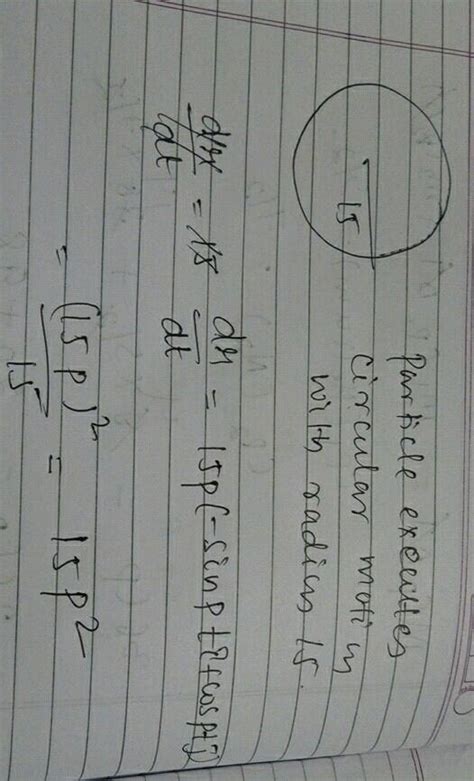 15
Particle executes
circular motion
with radius 15.
dr/dt = 15 dr/dt = 15p(-sinpt î + cospt ĵ)
= (15p)²/15 = 15p²